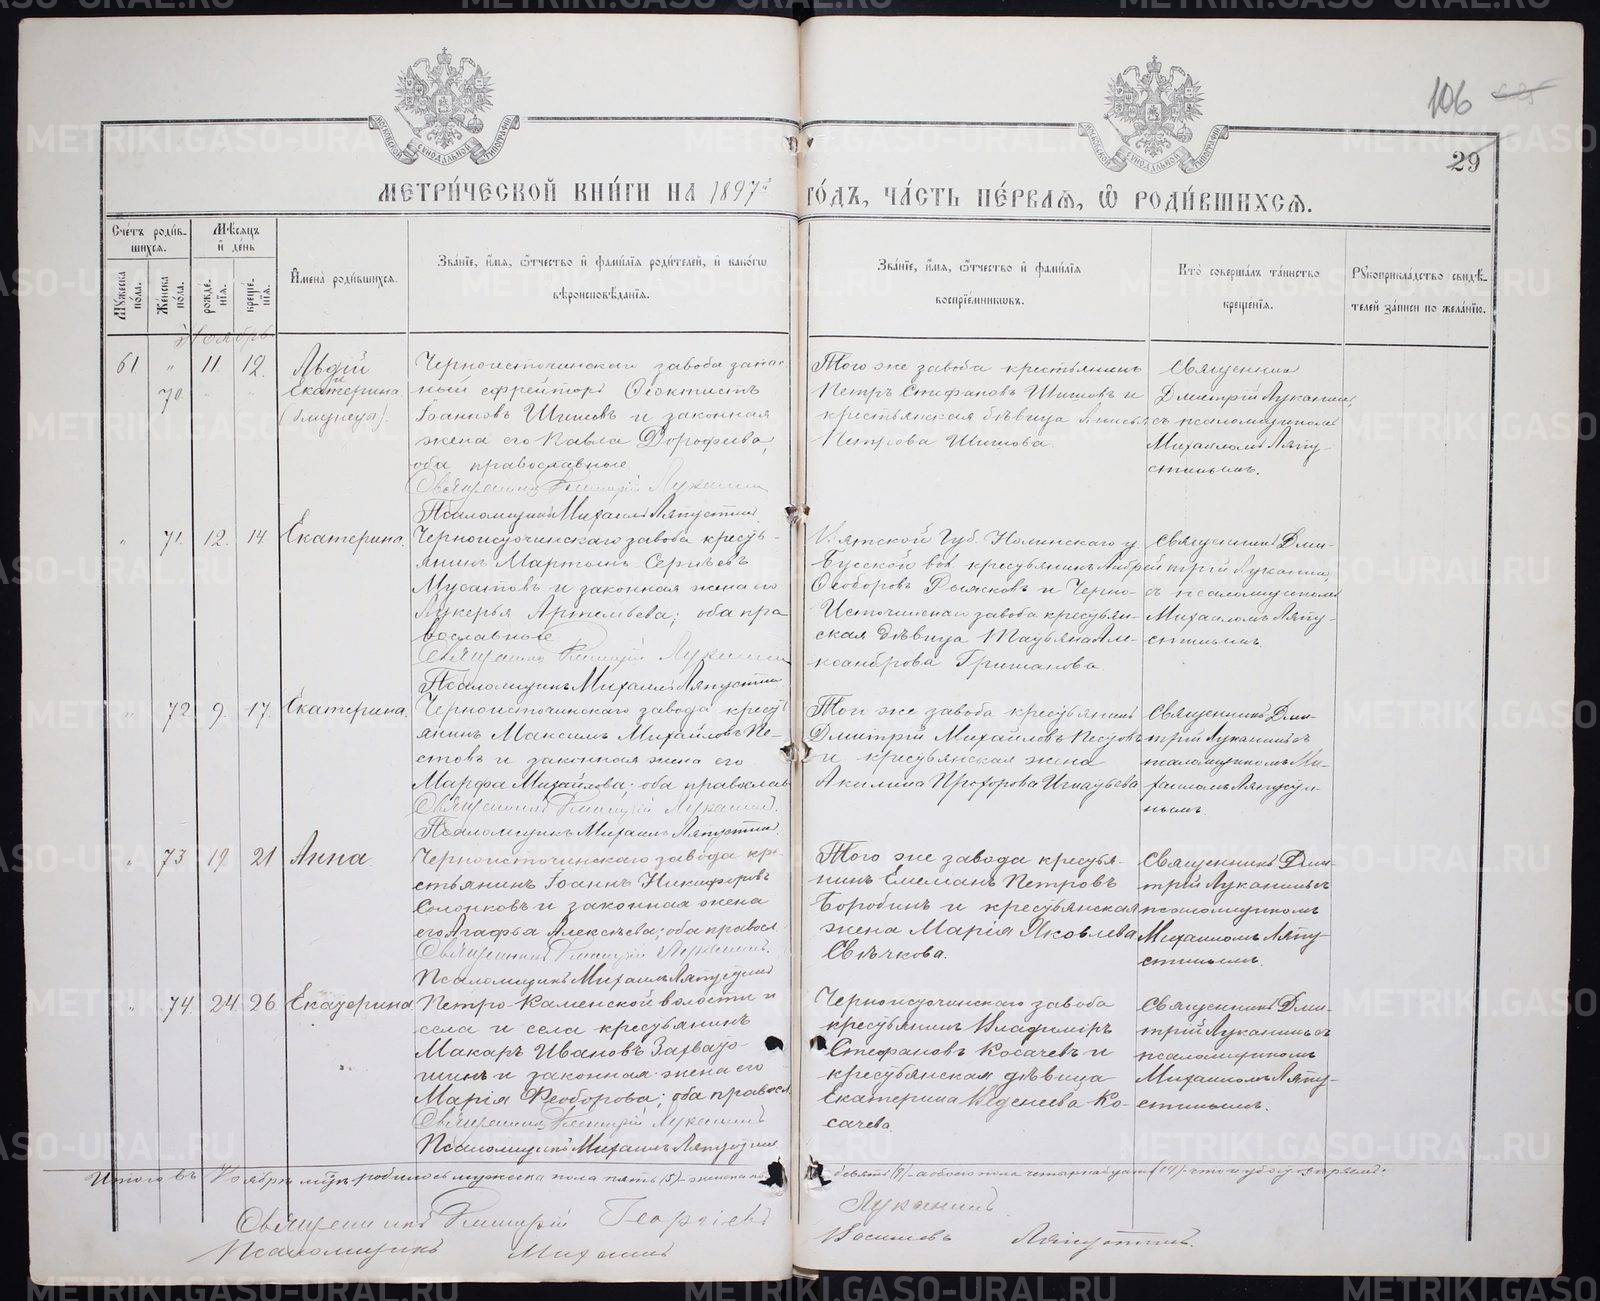 106
29
МОСКОВСКОЙ СѴНОДАЛЬНОЙ ТИПОГРАФІИ
МОСКОВСКОЙ СѴНОДАЛЬНОЙ ТИПОГРАФІИ
МЕТРИ́ЧЕСКОЙ КНИ́ГИ НА 1897й ГО́ДЪ, ЧА́СТЬ ПЕ́РВАѦ, Ѡ҆ РОДИ́ВШИХСѦ.
Сче́тъ роди́в-
шихсѧ.
Мѣ́сѧцъ и҆ де́нь
Мꙋ́жеска по́ла.
Же́нска по́ла.
рожде́нїѧ.
креще́нїѧ.
И҆мена̀ роди́вшихсѧ.
Зва́нїе, и҆́мѧ, ѻ҆́тчество и҆ фами́лїѧ роди́телей, и҆ како́гѡ
вѣроисповѣ́данїѧ.
Зва́нїе, и҆́мѧ, ѻ҆́тчество и҆ фами́лїѧ
воспрїе́мникѡвъ.
Кто̀ соверша́лъ та́инство
креще́нїѧ.
Рꙋкоприкла́дство свидѣ́-
телей за́писи по жела́нїю.
Ноябрь
61 " 11 12.
70
Авдій
и
Екатерина
(близнецы).
Черноисточинскаго завода запас-
ный ефрейторъ Ѳеоктистъ
Іоанновъ Шишовъ и законная
жена его Павла Дорофѣева,
оба православные
Священникъ Димитрій Луканинъ
Псаломщикъ Михаилъ Ляпустинъ
Того же завода крестьянинъ
Петръ Стефановъ Шишовъ и
крестьянская дѣвица Анисья
Петрова Шишова.
Священникъ
Дмитрій Луканинъ,
съ псаломщикомъ
Михаиломъ Ляпу-
стинымъ.
" 71. 12. 14. Екатерина.
Черноисточинскаго завода кресть-
янинъ Мартынъ Сергѣевъ
Мусатовъ и законная жена его
Лукерья Артемьева; оба пра
вославные
Священникъ Димитрій Луканинъ
Псаломщикъ Михаилъ Ляпустинъ
Вятской Губ. Нолинскаго у.
вол. крестьянинъ Андрей
Ѳеодоровъ и Черно-
Источинскаго завода крестьян-
ская дѣвица Татьяна Але-
ксандрова Гришанова.
Священникъ Дми-
трій Луканинъ,
съ псаломщикомъ
Михаиломъ Ляпу-
стинымъ
" 72. 9. 17. Екатерина.
Черноисточинскаго завода кресть
янинъ Максимъ Михайловъ Пе-
стовъ и законная жена его
Марфа Михайлова; оба православ
Священникъ Димитрій Луканинъ.
Псаломщикъ Михаилъ Ляпустинъ.
Того же завода крестьянинъ
Дмитрій Михайловъ Пестовъ
и крестьянская жена
Акилина Прохорова Игнатьева
Священникъ Дми-
трій Луканинъ съ
псаломщикомъ Ми-
хаиломъ Ляпусти-
нымъ.
" 73 19. 21 Анна
Черноисточинскаго завода кре-
стьянинъ Іоаннъ Никифоровъ
и законная жена
его Агафья Алексѣева; оба правосл.
Священникъ Димитрій Луканинъ.
Псаломщикъ Михаилъ Ляпустинъ
Того же завода крестья-
нинъ Емельянъ Петровъ
Бородинъ и крестьянская
жена Марія Яковлева
Свѣчкова.
Священникъ Дми-
трій Луканинъ съ
псаломщикомъ
Михаиломъ Ляпу-
стинымъ.
" 74. 24. 26 Екатерина
Петро-Каменской волости и
села и села крестьянинъ
Макаръ Ивановъ
и законная жена его
Марія Ѳеодорова; оба правосл.
Священникъ Димитрій Луканинъ
Псаломщикъ Михаилъ Ляпустинъ
Черноисточинскаго завода
крестьянинъ Владиміръ
Стефановъ Косачевъ и
крестьянская дѣвица
Екатерина Ко-
сачева.
Священникъ Дми-
трій Луканинъ съ
псаломщикомъ
Михаиломъ Ляпу-
стинымъ.
Итого въ Ноябрѣ м-цѣ родилось мужеска пола пять (5) женска п девять (9) а обоего пола четырнадцать (14)
Священникъ Димитрій Георгіевъ Луканинъ.
Псаломщикъ Михаилъ Ляпустинъ.
METRIKI.GASO-URAL.RU